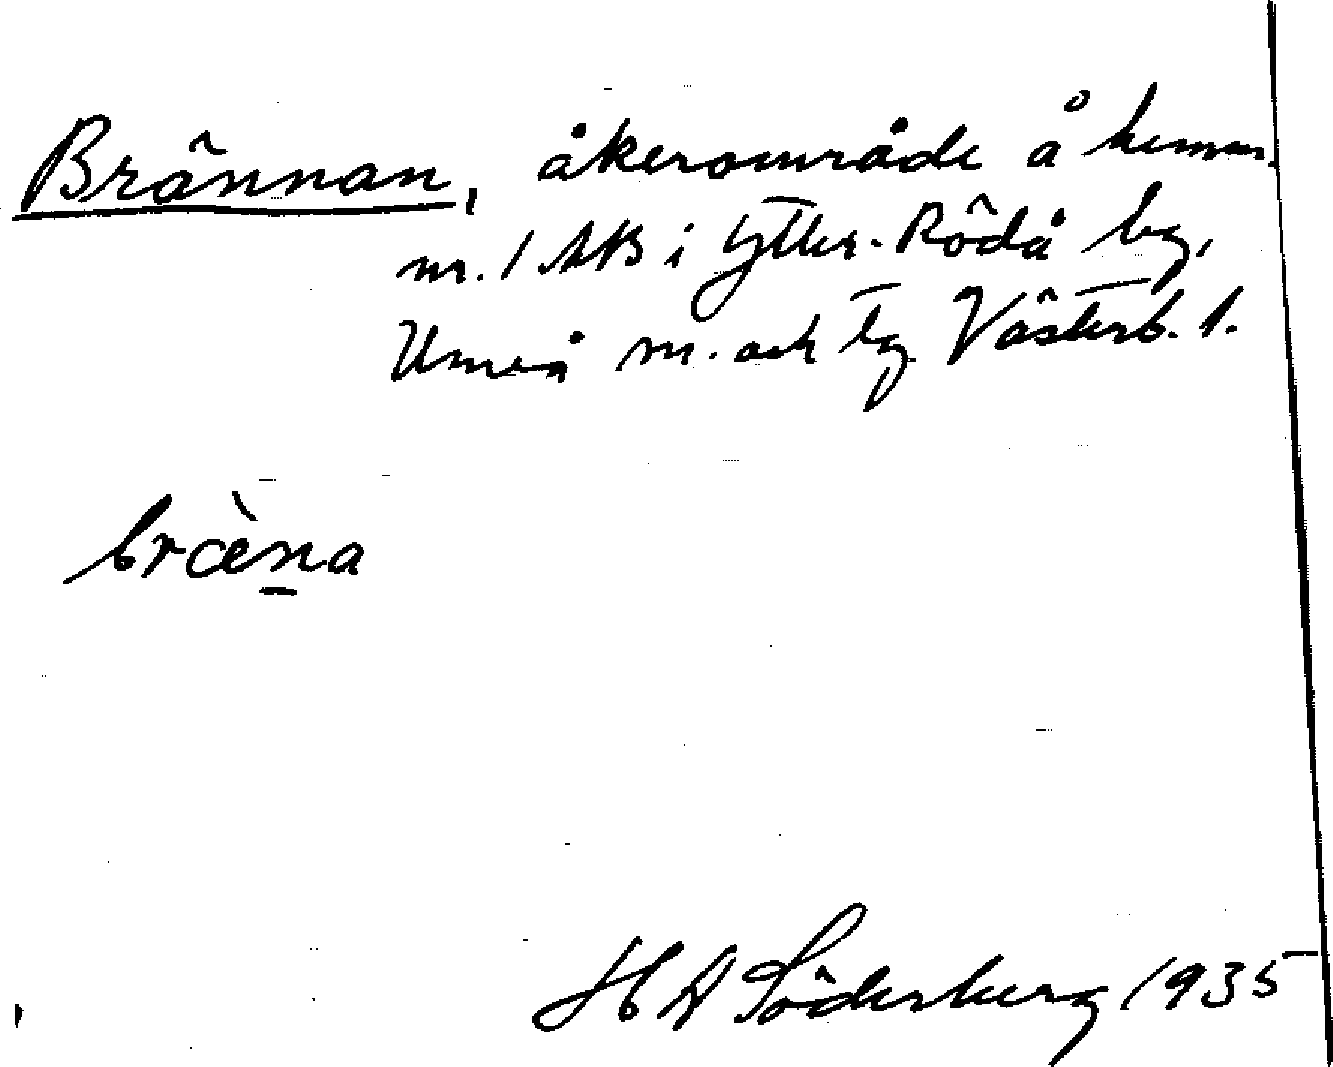 Brännan, åkerområde å hemm.
nr. 1 AB i Ytter-Rödå by,
Umeå sn. och tg Västerb. l.
bræ̀n̲a
H A Söderberg 1935